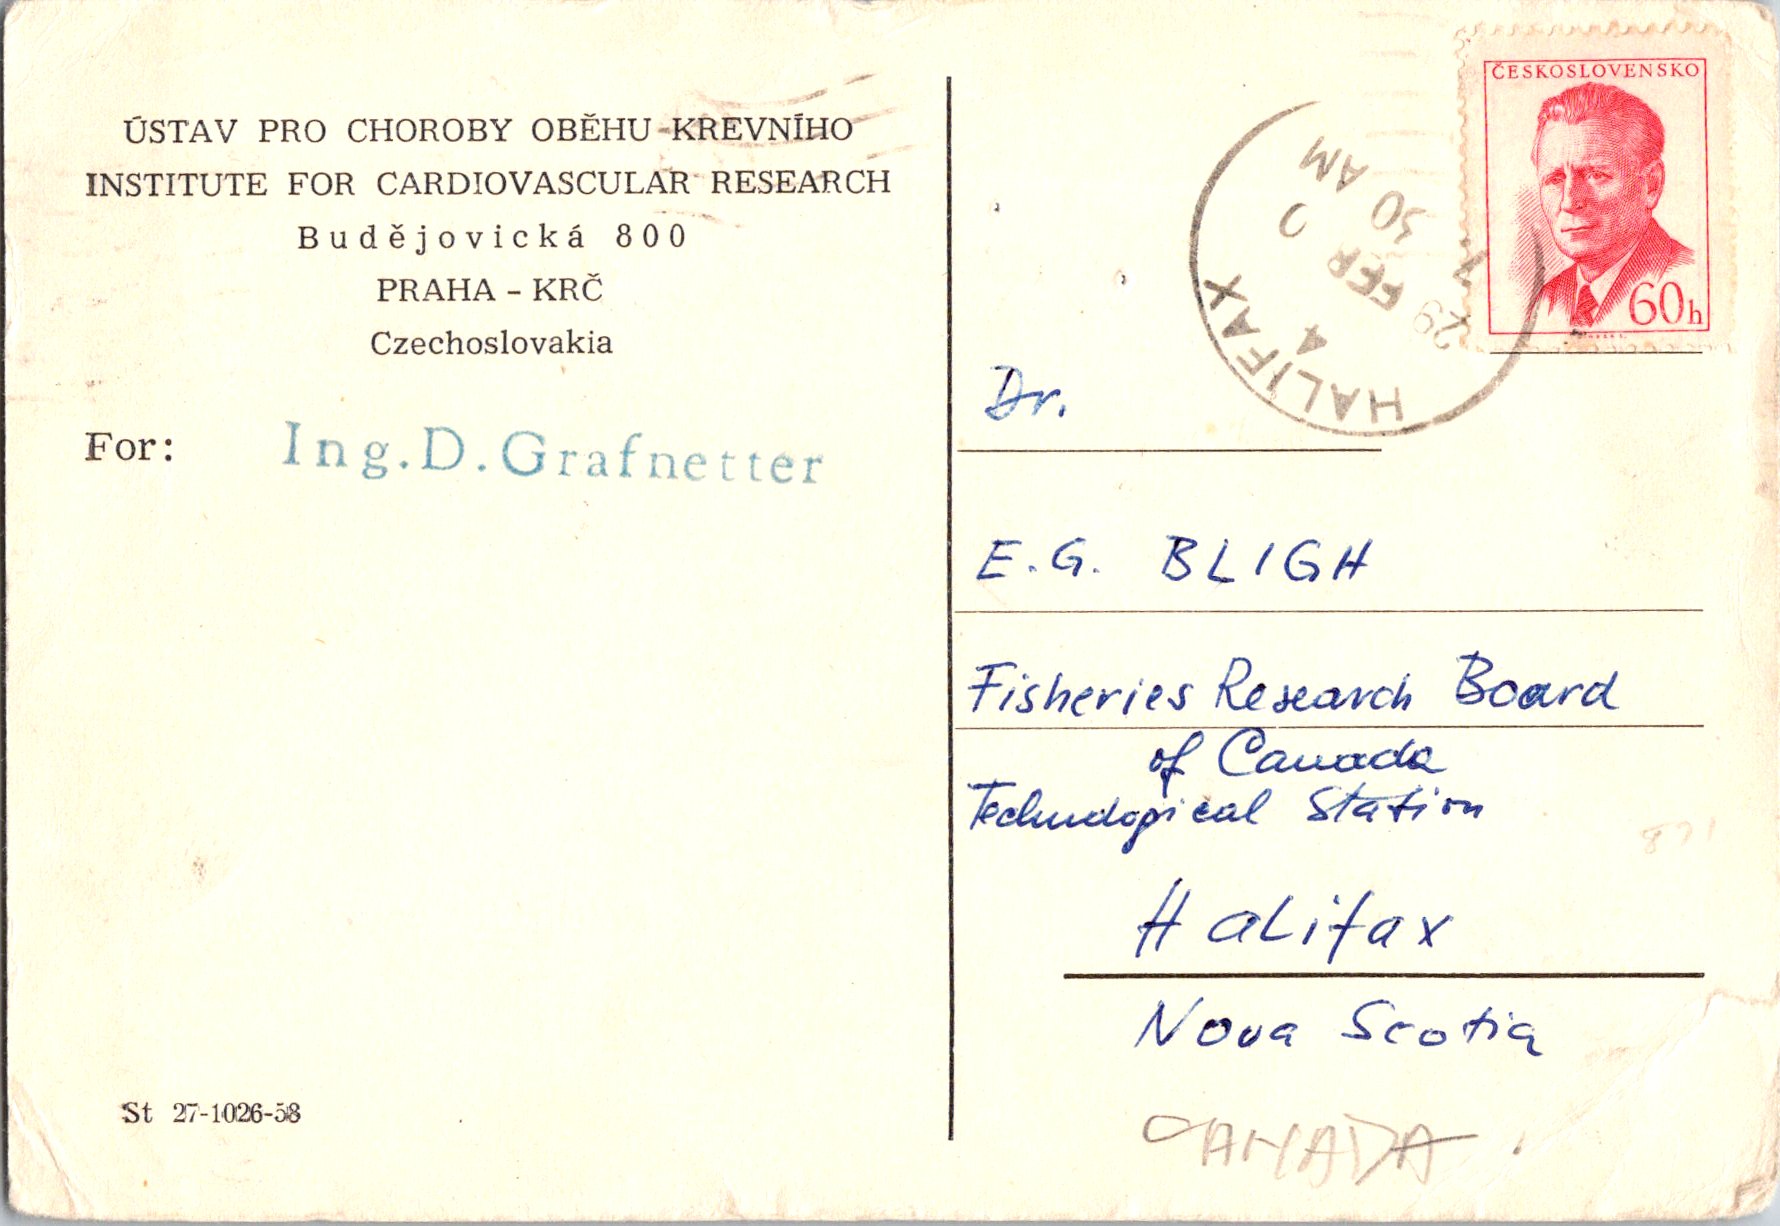 ÚSTAV PRO CHOROBY OBĚHU KREVNÍHO
INSTITUTE FOR CARDIOVASCULAR RESEARCH
Budějovická 800
PRAHA - KRČ
Czechoslovakia
For: Ing. D. Grafnetter
St 27-1026-58
ČESKOSLOVENSKO
60h
HALIFAX
4
30 AM
29 FEB
Dr.
E. G. BLIGH
Fisheries Research Board
of Canada
Technological Station
Halifax
Nova Scotia
CANADA